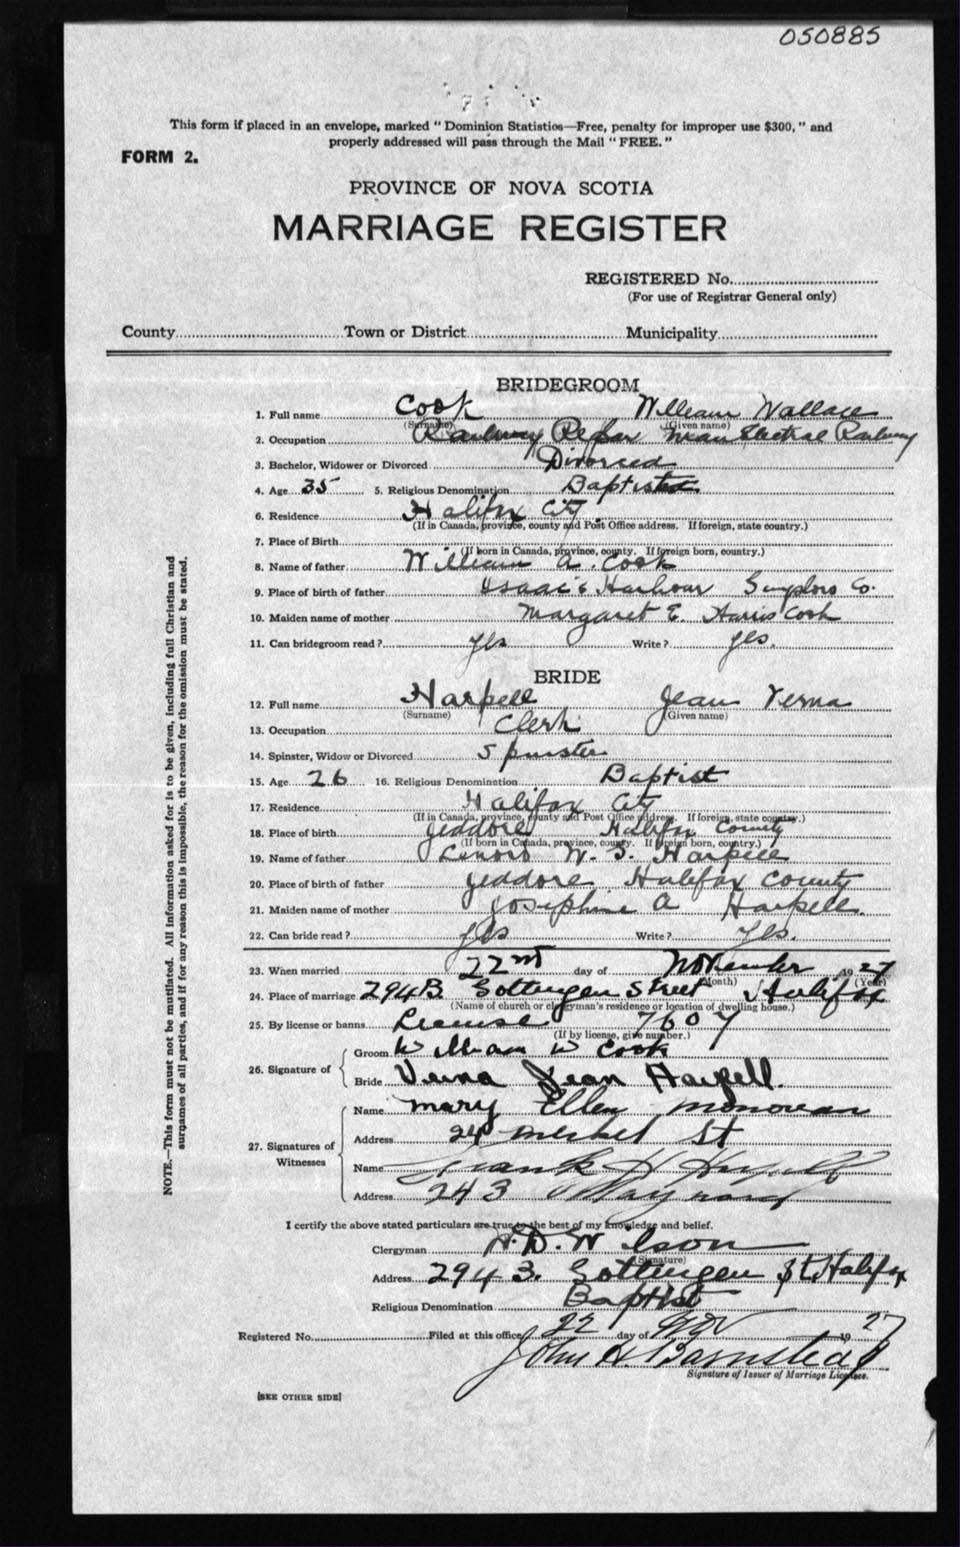 050885
This form if placed in an envelope, marked "Dominion Statistics—Free, penalty for improper use $300," and
properly addressed will pass through the Mail "FREE."
FORM 2.
PROVINCE OF NOVA SCOTIA
MARRIAGE REGISTER
REGISTERED No.
(For use of Registrar General only)
County Town or District Municipality
BRIDEGROOM
1. Full name Cook William Wallace
(Surname) (Given name)
2. Occupation Railway Electral Railway
3. Bachelor, Widower or Divorced Divorced
4. Age 35 5. Religious Denomination Baptist
6. Residence Halifax City
(If in Canada, province, county and Post Office address. If foreign, state country.)
7. Place of Birth
(If born in Canada, province, county. If foreign born, country.)
8. Name of father William A. Cook
9. Place of birth of father Isaac's Harbour Co.
10. Maiden name of mother Margaret E. Harris Cook
11. Can bridegroom read? yes Write? yes.
BRIDE
12. Full name Harpell Jean Verna
(Surname) (Given name)
13. Occupation Clerk
14. Spinster, Widow or Divorced Spinster
15. Age 26 16. Religious Denomination Baptist
17. Residence Halifax City
(If in Canada, province, county and Post Office address. If foreign, state country.)
18. Place of birth Jeddore Halifax County
(If born in Canada, province, county. If foreign born, country.)
19. Name of father W. S. Harpell
20. Place of birth of father Jeddore Halifax County
21. Maiden name of mother Josephine A Harpell.
22. Can bride read? yes Write? Yes.
23. When married 22nd day of November 1927
(Month) (Year)
24. Place of marriage 294B. Gottingen Street Halifax
(Name of church or clergyman's residence or location of dwelling house.)
25. By license or banns License 7607
(If by license, give number.)
26. Signature of
Groom William W Cook
Bride Verna Jean Harpell.
27. Signatures of Witnesses
Name Mary Ellen Monovan
Address 24 Merkel St
Name Frank H
Address 243 Maynard
I certify the above stated particulars are true to the best of my knowledge and belief.
Clergyman H. D. Wilson
(Signature)
Address 294 B. Gottingen St. Halifax
Religious Denomination Baptist
Registered No. Filed at this office 22 day of Nov 1927
John H. Barnstead
Signature of Issuer of Marriage Licenses.
[SEE OTHER SIDE]
NOTE.—This form must not be mutilated. All information asked for is to be given, including full Christian and
surnames of all parties, and if for any reason this is impossible, the reason for the omission must be stated.